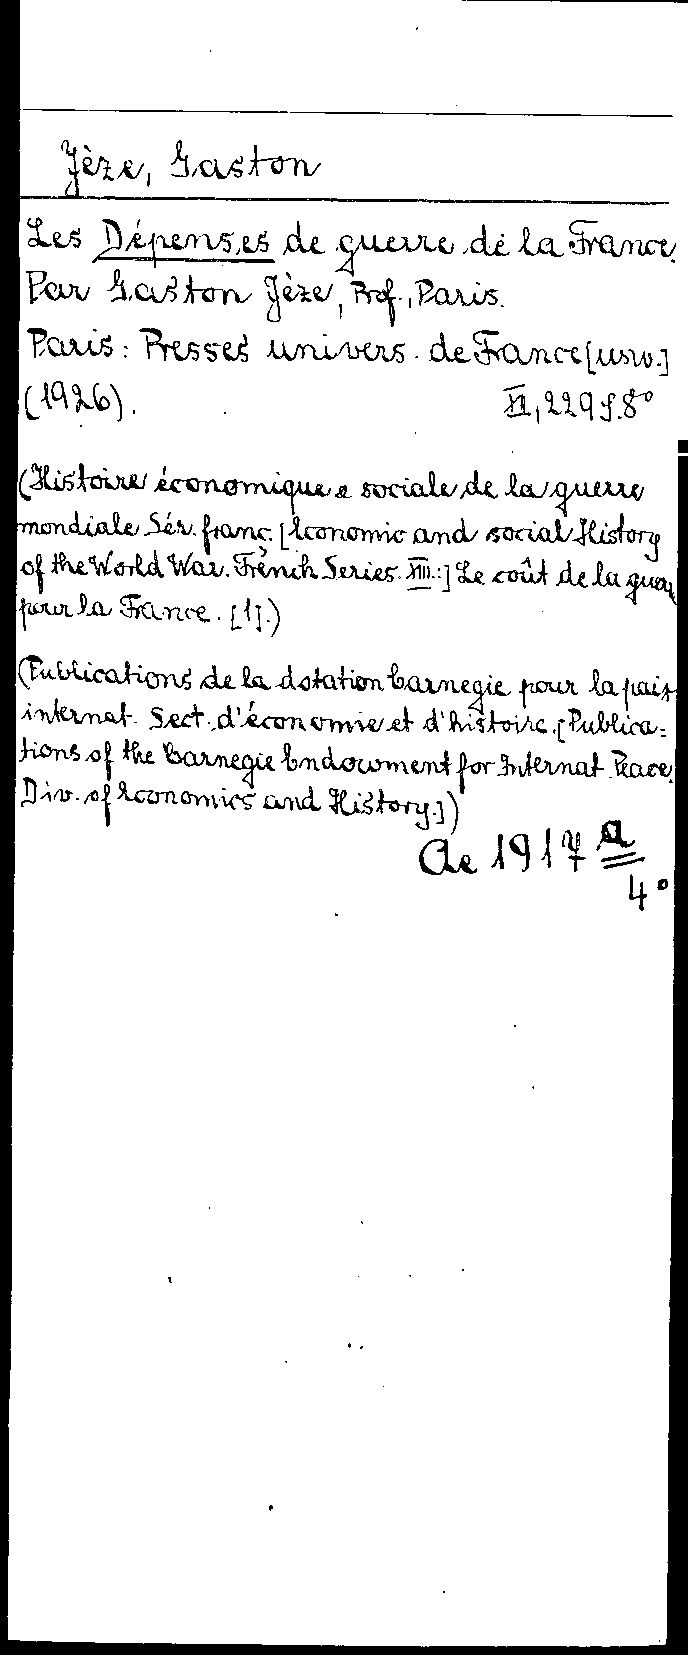 Jèze, Gaston
Les Dépenses de guerre de la France.
Par Gaston Jèze, Prof., Paris.
Paris: Presses univers. de France [usw.]
(1926). XII, 229 S. 8°
(Histoire économique e sociale de la guerre
mondiale Sér. franç. [Economic and social History
of the World War. French Series. XIII.:] Le coût de la guerre
pour la France. [1].)
(Publications de la dotation Carnegie pour la paix
internat. Sect. d'économie et d'histoire. [Publica=
tions of the Carnegie Endowment for Internat. Peace.
Div. of Economics and History.])
Ae 1917 a
4°